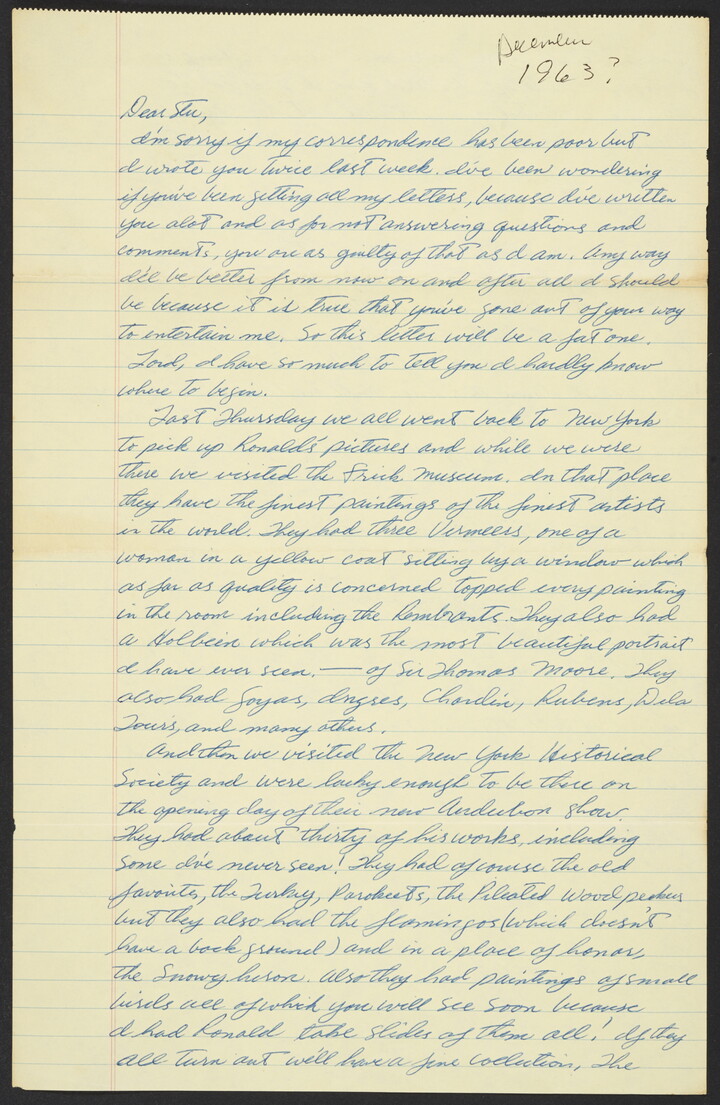 December
1963?
Dear Stu,
I'm sorry if my correspondence has been poor but
I wrote you twice last week. I've been wondering
if you've been getting all my letters, because I've written
you alot and as for not answering questions and
comments, you are as guilty of that as I am. Any way
I'll be better from now on and after all I should
be because it is true that you've gone out of your way
to entertain me. So this letter will be a fat one.
Lord, I have so much to tell you I hardly know
where to begin.
Last Thursday we all went back to New York
to pick up Ronald's pictures and while we were
there we visited the Frick Museum. In that place
they have the finest paintings of the finest artists
in the world. They had three Vermeers, one of a
woman in a yellow coat sitting by a window which
as far as quality is concerned topped every painting
in the room including the Rembrants. They also had
a Holbein which was the most beautiful portrait
I have ever seen. — of Sir Thomas Moore. They
also had Goyas, Ingres, Chardin, Rubens, Dela
Tours, and many others.
And then we visited the New York Historical
Society and were lucky enough to be there on
the opening day of their new Audubon show.
They had about thirty of his works, including
some I've never seen! They had of course the old
favorites, the Turkey, Parokeets, the Pileated Wood peckers
but they also had the flamingos (which doesn't
have a back ground) and in a place of honor,
the Snowy heron. Also they had paintings of small
birds all of which you will see soon because
I had Ronald take slides of them all! If they
all turn out we'll have a fine collection. The